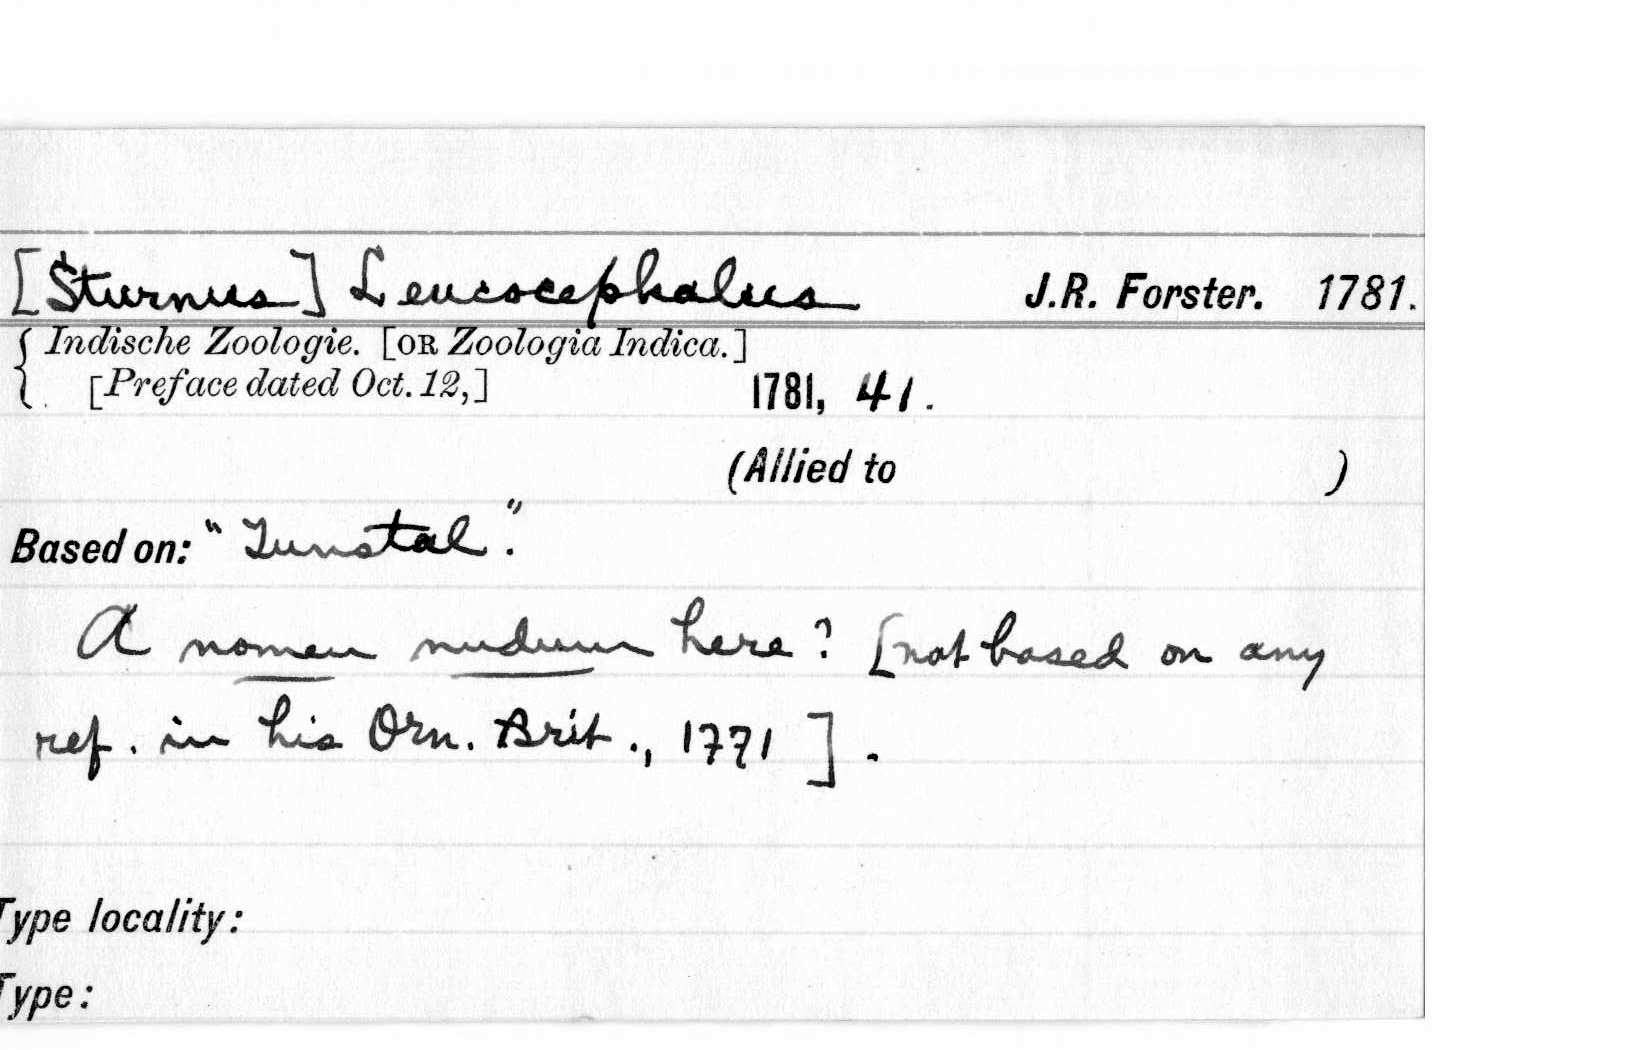 [Sturnus] Leucocephalus J.R. Forster. 1781.
Indische Zoologie. [OR Zoologia Indica.]
[Preface dated Oct. 12,] 1781, 41.
(Allied to )
Based on: "Tunstal".
A nomen nudum here? [not based on any
ref. in his Orn. Brit., 1771].
Type locality:
Type: